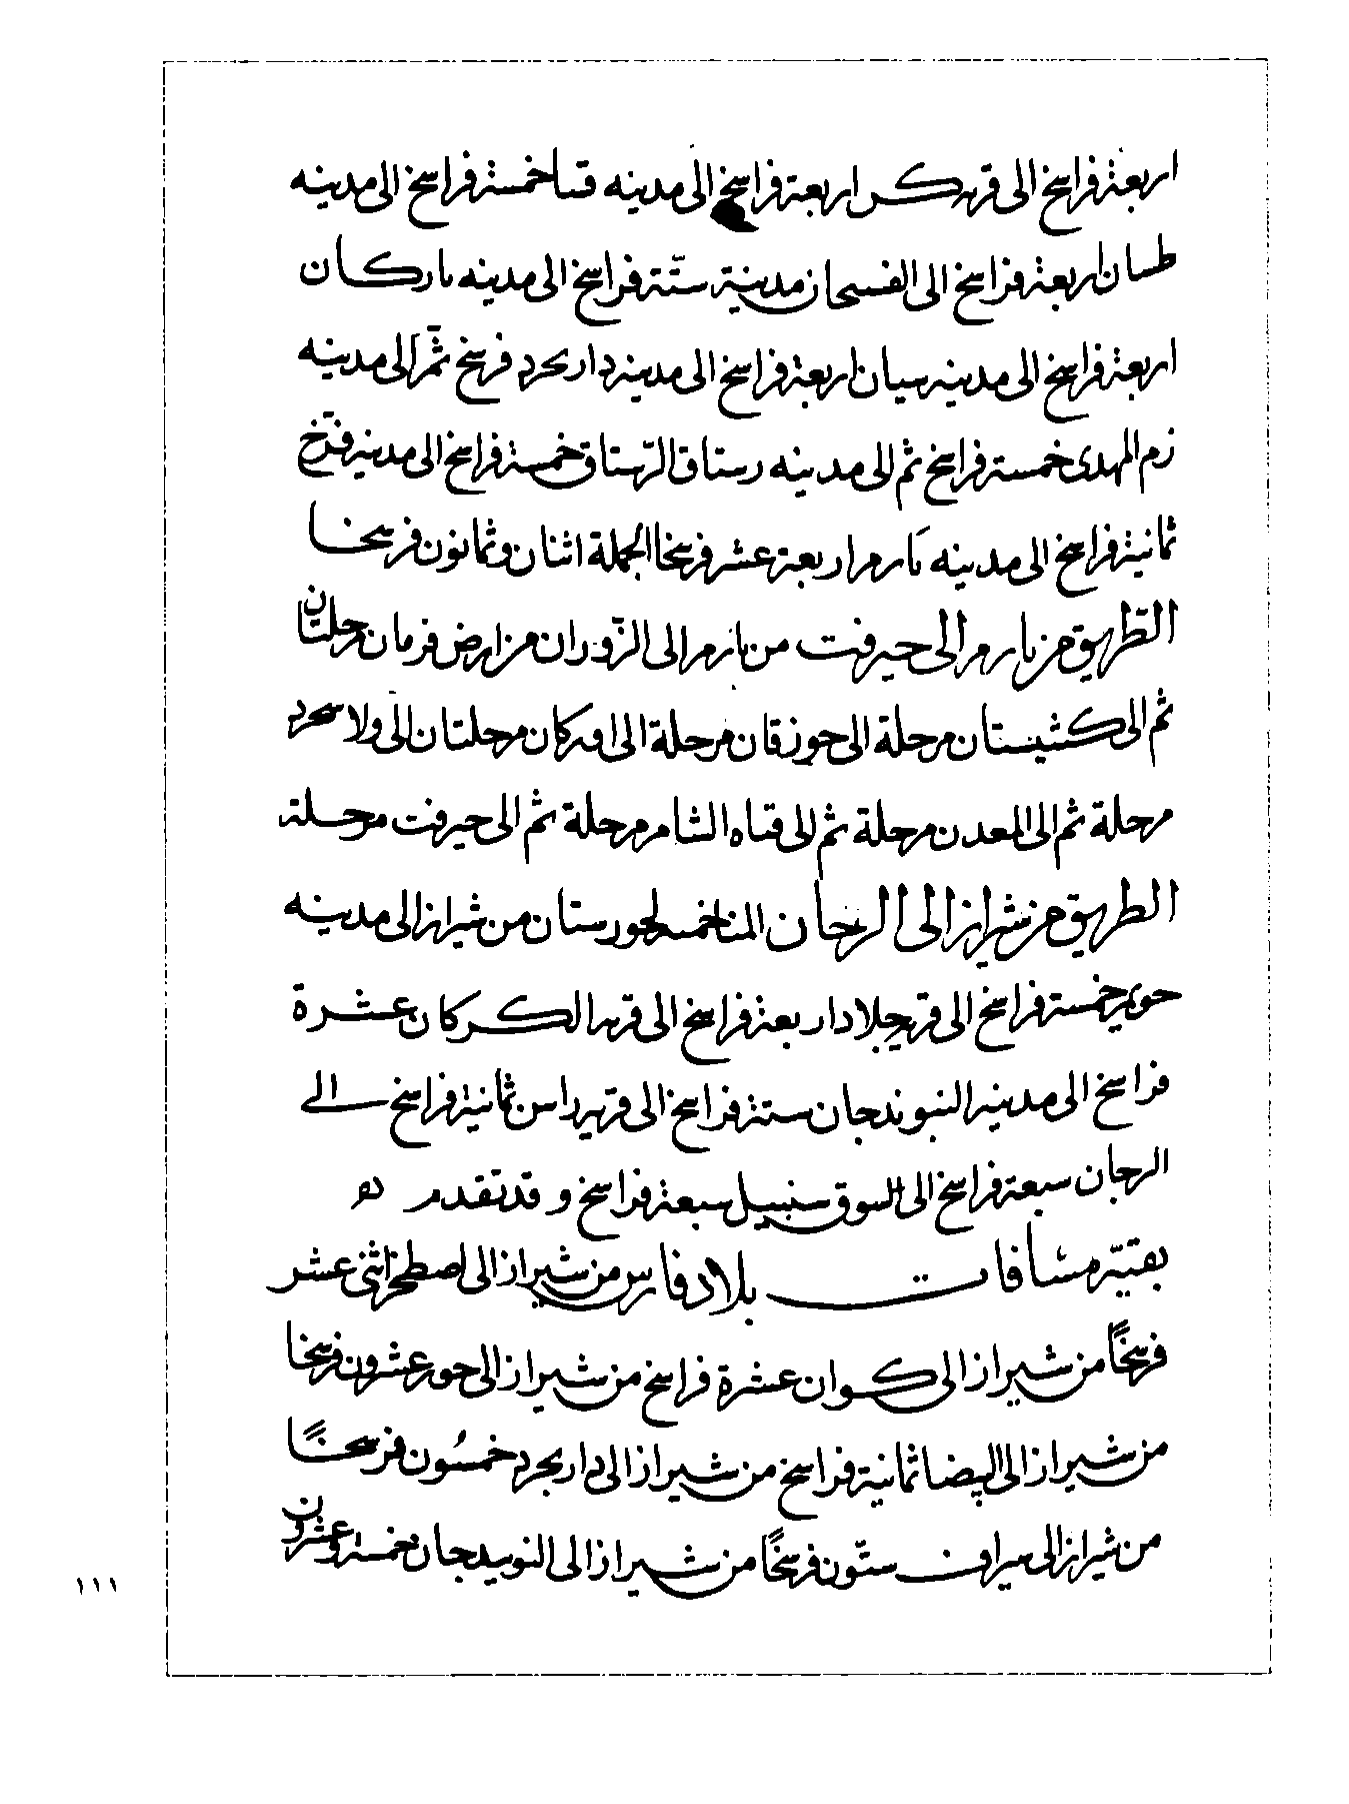 اربعة فراسخ الى قريه كس اربعة فراسخ الى مدينه فسا خمسة فراسخ الى مدينه
طسان اربعة فراسخ الى الفسحان مدينة ستّة فراسخ الى مدينه باركان
اربعة فراسخ الى مدينه سيان اربعة فراسخ الى مدينه دارابجرد فرسخ ثمّ الى مدينه
زم المهدى خمسة فراسخ ثم الى مدينه رستاق الرّستاق خمسة فراسخ الى مدينه فرّخ
ثمانية فراسخ الى مدينه تارم اربعة عشر فرسخا الجملة اثنان وثمانون فرسخا
الطّريق من تارم الى جيرفت من تارم الى الزّوران من ارض فرمان مرحلتان
ثم الى كشيستان مرحلة الى جوزقان مرحلة الى امركان مرحلتان الى ولاسجرد
مرحلة ثم الى المعدن مرحلة ثم الى قناه الشام مرحلة ثم الى جيرفت مرحلة
الطريق من شيراز الى الرجان المتاخمه لخورستان من شيراز الى مدينه
جويم خمسة فراسخ الى قريه جلاد اربعة فراسخ الى قريه الكركان عشرة
فراسخ الى مدينه النبوندجان ستة فراسخ الى قريه داسن ثمانية فراسخ الى
الرجان سبعة فراسخ الى السوق سنبيل سبعة فراسخ وقد تقدم
بقيّه مسافات بلاد فارس من شيراز الى اصطخر اثنى عشر
فرسخًا من شيراز الى كوان عشرة فراسخ من شيراز الى جور عشرون فرسخا
من شيراز الى البيضا ثمانية فراسخ من شيراز الى دارابجرد خمسُون فرسخًا
من شيراز الى سيراف ستّون فرسخًا من شيراز الى النوبيدجان خمسة وعشرون
١١١